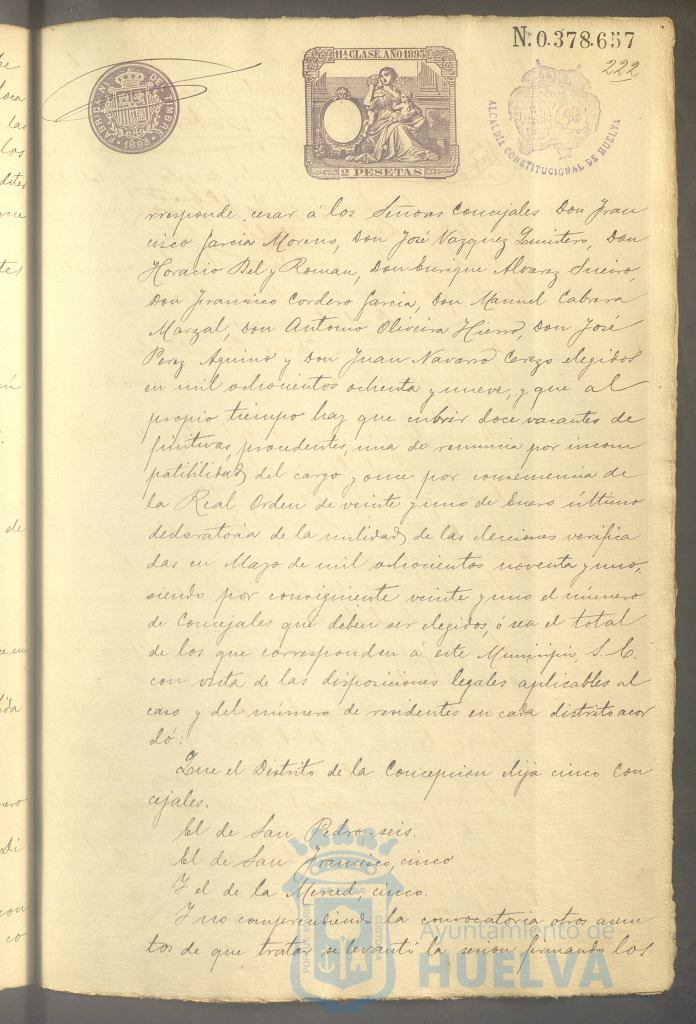 N.0.378.657
222
11ª CLASE. AÑO 1893
2 PESETAS
FABRICA NAL. DEL TIMBRE
1893
ALCALDÍA CONSTITUCIONAL DE HUELVA
rresponde cesar á los Señores Concejales Don Fran
cisco Garcia Moreno, Don José Vazquez Quintero, Don
Horacio Bel y Roman, Don Enrique Alvarez Sueiro,
Don Francisco Cordero Garcia, Don Manuel Cabrera
Marzal, Don Antonio Oliveira Hierro, Don José
Perez Aquino y Don Juan Navarro Cerezo elegidos
en mil ochocientos ochenta y nueve, y que al
propio tiempo hay que cubrir doce vacantes de
finitivas, procedentes, una de renuncia por incom
patibilidad del cargo y once por consecuencia de
la Real Orden de veinte y uno de Enero último
declaratoria de la nulidad de las elecciones verifica
das en Mayo de mil ochocientos noventa y uno,
siendo por consiguiente veinte y uno el número
de Concejales que deben ser elegidos, ó sea el total
de los que corresponden á este Municipio, S. C.
con vista de las disposiciones legales aplicables al
caso y del número de residentes en cada distrito acor
dó:
Que el Distrito de la Concepcion elija cinco Con
cejales.
El de San Pedro, seis.
El de San Francisco, cinco
Y el de la Merced, cinco.
Y no comprendiendo la convocatoria otros asun
tos de que tratar se levantó la sesion firmando los
Ayuntamiento de
HUELVA